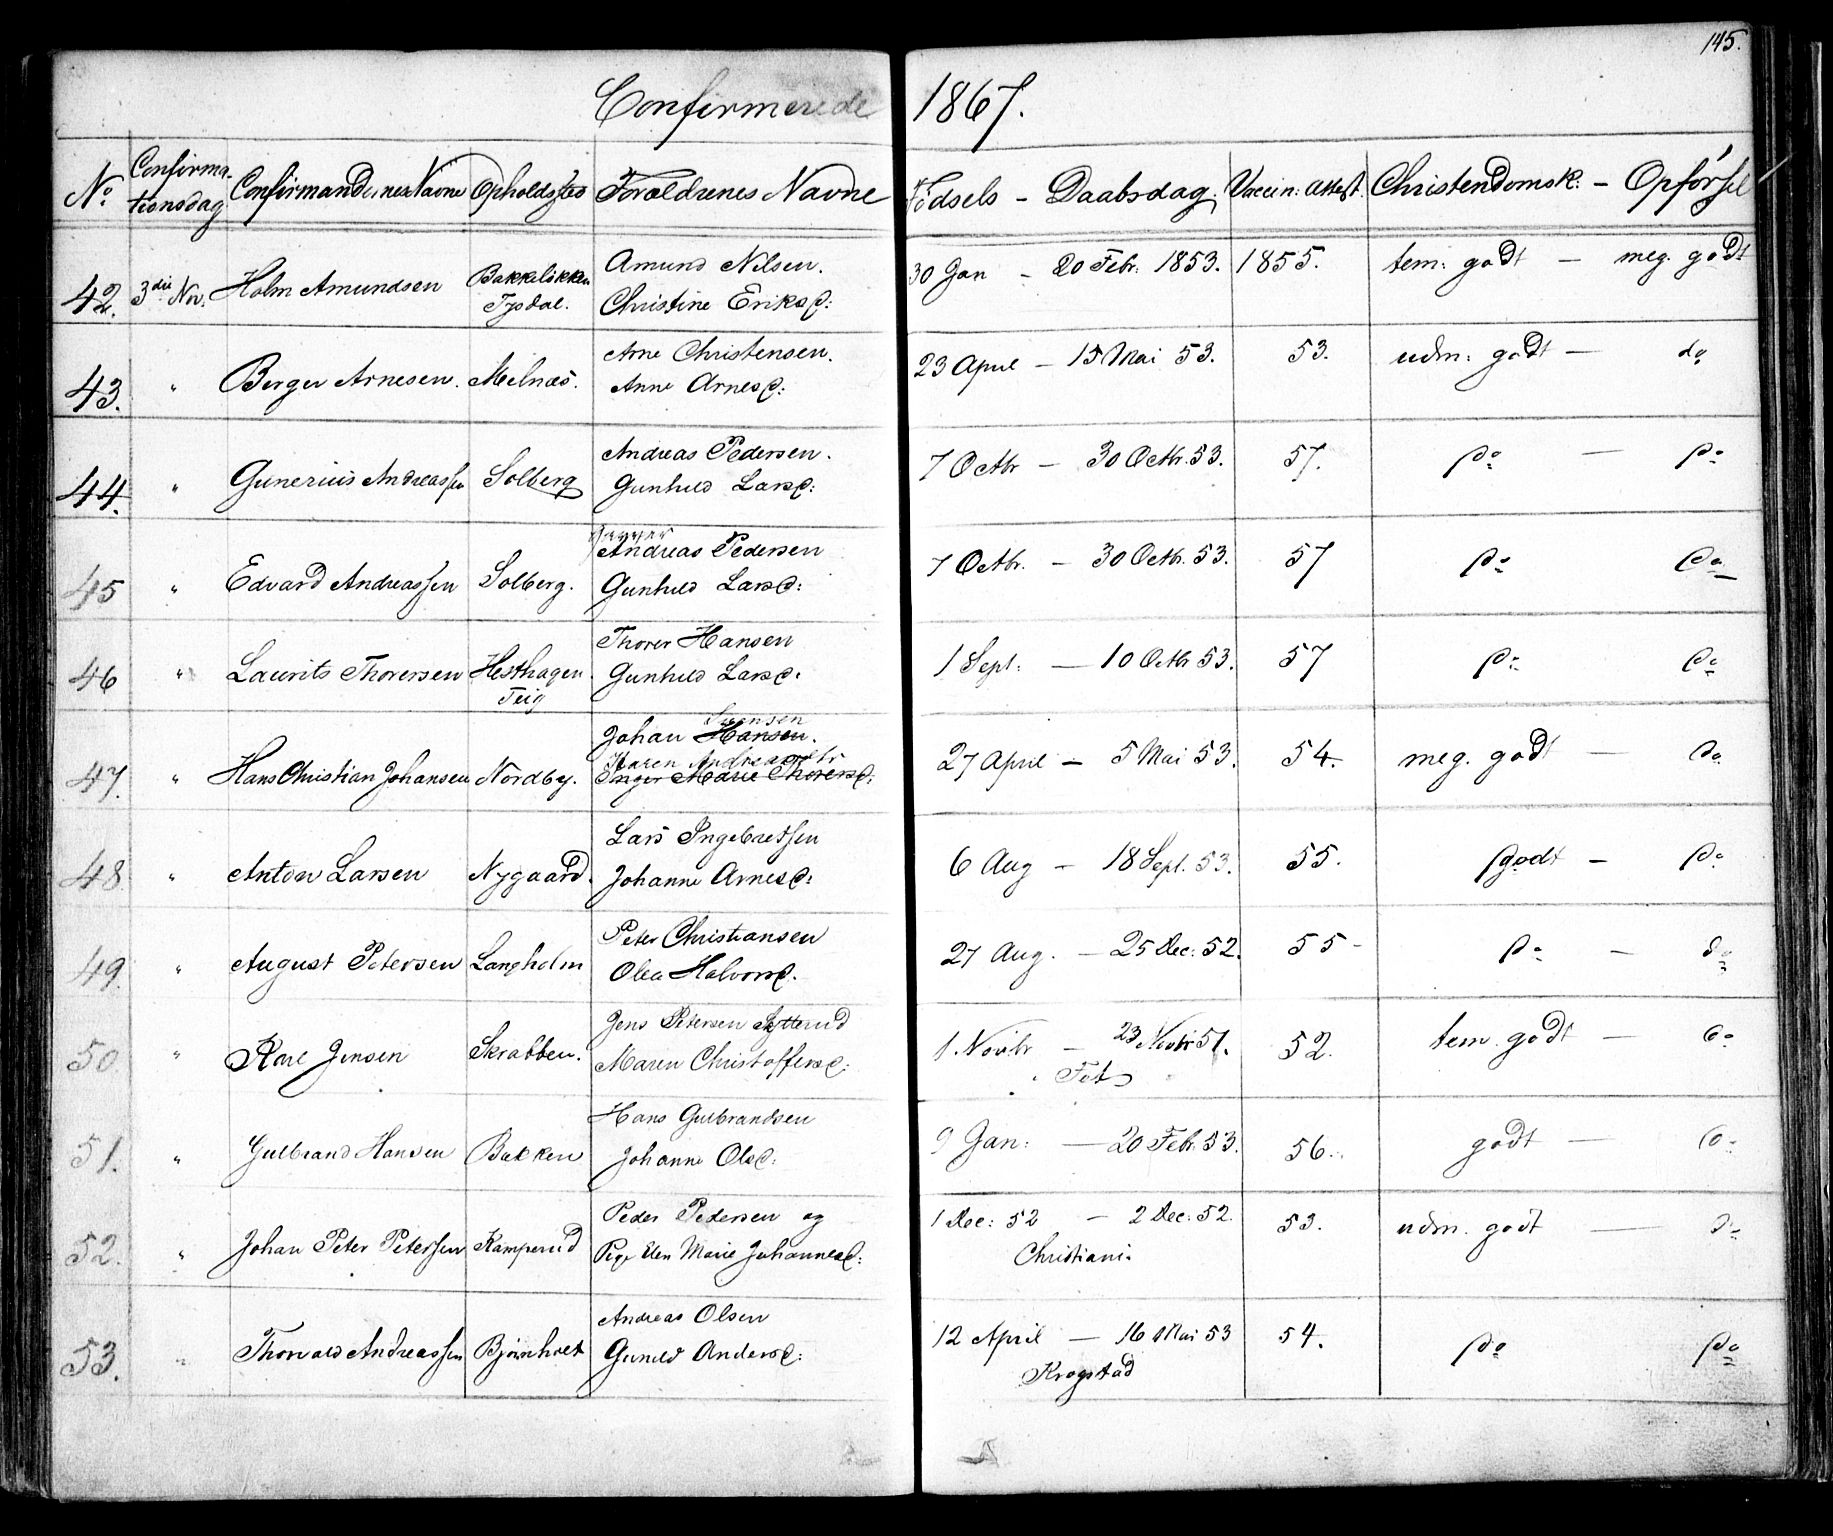 145.
Confirmerede 1867.
No Confirmationsdag Confirmandernes Navne Opholdssted Forældrenes Navne Fødsels - Daabsdag. Vaccin: attest. Christendomsk: - Opførsel
42. 3die Nov. Holm Amundsen Bakkeløkken Tysdal. Amund Nilsen. Christine Eriksd: 30 Jan - 20 Febr: 1853. 1855. tem: godt - meg. godt
43. " Berger Arnesen. Melnæs. Arne Christensen. Anne Arnesd: 23 April - 15 Mai 53. 53. udm: godt - do
44. " Gunerius Andreassen Solberg Andreas Pedersen. Gunhild Larsd: 7 Octbr - 30 Octbr. 53. 57. do - do
45 " Edvard Andreassen Solberg. Andreas Pedersen Gunhild Larsd: 7 Octbr. - 30 Octbr. 53. 57 do do
46 " Laurits Thorersen Hesthagen Teig Thorer Hansen Gunhild Larsd: 1 Sept: - 10 Octbr 53. 57 do do
47. " Hans Christian Johansen Nordby. Johan Hansen. Svensen Inger Marie Thorersd: Karen Andreasdtr 27 April - 5 Mai 53. 54. meg. godt - do
48 " Anton Larsen Nygaard. Lars Ingebretsen Johanne Arnesd: 6 Aug - 18 Sept. 53. 55. godt - do
49. " August Petersen Langholm Peter Christiansen Olea Halvorsd. 27 Aug. - 25 Dec: 52. 55 - do - do
50. " Karl Jensen Skrabben. Jens Petersen Sytterud Maren Christoffersd: 1 Novbr - 23 Novbr 51. Fet 52. tem. godt - do
51. " Gulbrand Hansen Bakken Hans Gulbrandsen Johanne Olsd: 9 Jan: - 20 Feb. 53. 56. godt - do
52. " Johan Peter Petersen Kamperud Peder Pedersen og Pige Elen Marie Johannesd: 1 Dec: 52 - 2 Dec: 52. Christiani. 53. udm. godt - do
53. " Thorvald Andreassen Bjørnholt Andreas Olsen Gunild Andersd: 12 April - 16 Mai 53 Krogstad 54. do do